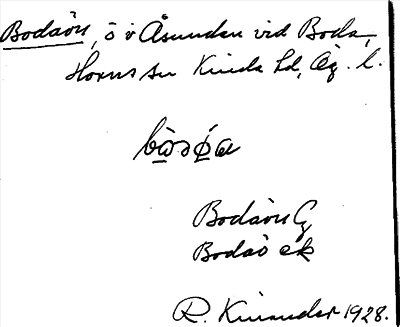 Bodaön, ö i Åsunden vid Boda,
Horns sn Kinda hd, Ög. l.
Bodaön G
Bodaö ek
R. 1928.